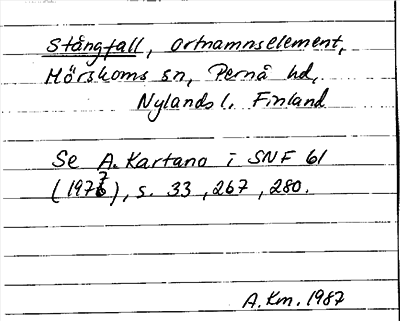 Stångfall, ortnamnselement,
Mörskoms sn, Pernå hd,
Nylands l. Finland
Se A. Kartano i SNF 61
(1977), s. 33, 267, 280.
A.Km. 1987